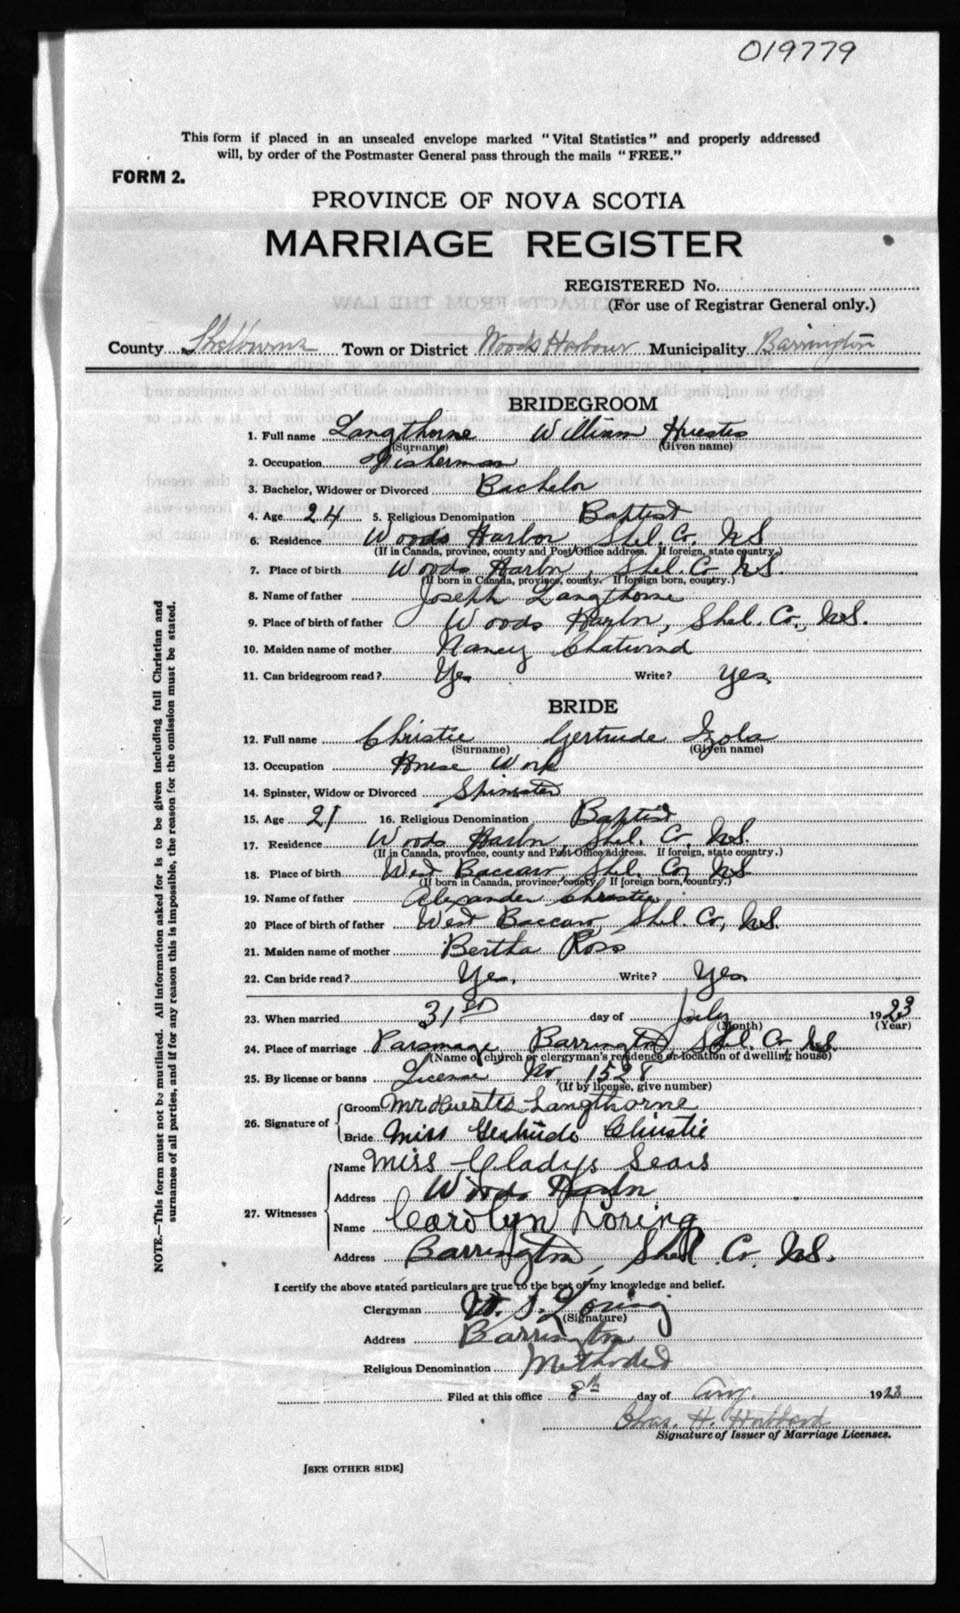 019779
This form if placed in an unsealed envelope marked "Vital Statistics" and properly addressed
will, by order of the Postmaster General pass through the mails "FREE."
FORM 2.
PROVINCE OF NOVA SCOTIA
MARRIAGE REGISTER
REGISTERED No.
(For use of Registrar General only.)
County Shelburne Town or District Woods Harbour Municipality Barrington
BRIDEGROOM
1. Full name Langthorne William Huestis
(Surname) (Given name)
2. Occupation Fisherman
3. Bachelor, Widower or Divorced Bachelor
4. Age 24 5. Religious Denomination Baptist
6. Residence Woods Harbor Shel. Co. N.S.
(If in Canada, province, county and Post Office address. If foreign, state country.)
7. Place of birth Woods Harbor, Shel. Co N.S.
(If born in Canada, province, county. If foreign born, country.)
8. Name of father Joseph Langthorne
9. Place of birth of father Woods Harbor, Shel. Co., N.S.
10. Maiden name of mother Nancy Chatwind
11. Can bridegroom read? Yes Write? Yes
BRIDE
12. Full name Christie Gertrude Izola
(Surname) (Given name)
13. Occupation House Work
14. Spinster, Widow or Divorced Spinster
15. Age 21 16. Religious Denomination Baptist
17. Residence Woods Harbor, Shel. Co. N.S.
(If in Canada, province, county and Post Office address. If foreign, state country.)
18. Place of birth West Baccaro, Shel. Co, N.S.
(If born in Canada, province, county. If foreign born, country.)
19. Name of father Alexander Christie
20 Place of birth of father West Baccaro, Shel. Co, N.S.
21. Maiden name of mother Bertha Ross
22. Can bride read? Yes. Write? Yes
23. When married 31st day of July 1923
(Month) (Year)
24. Place of marriage Parsonage Barrington, Shel. Co, N.S.
(Name of church or clergyman's residence or location of dwelling house)
25. By license or banns License No. 1528
(If by license, give number)
26. Signature of
Groom Mr Huestis Langthorne
Bride Miss Gertrude Christie
27. Witnesses
Name Miss Gladys Sears
Address Woods Harbor
Name Carolyn Loring
Address Barrington, Shel. Co. N.S.
I certify the above stated particulars are true to the best of my knowledge and belief.
Clergyman Loring
(Signature)
Address Barrington
Religious Denomination Methodist
Filed at this office 8th day of Aug. 1923
Chas. H.
Signature of Issuer of Marriage Licenses.
[SEE OTHER SIDE]
NOTE.—This form must not be mutilated. All information asked for is to be given including full Christian and
surnames of all parties, and if for any reason this is impossible, the reason for the omission must be stated.